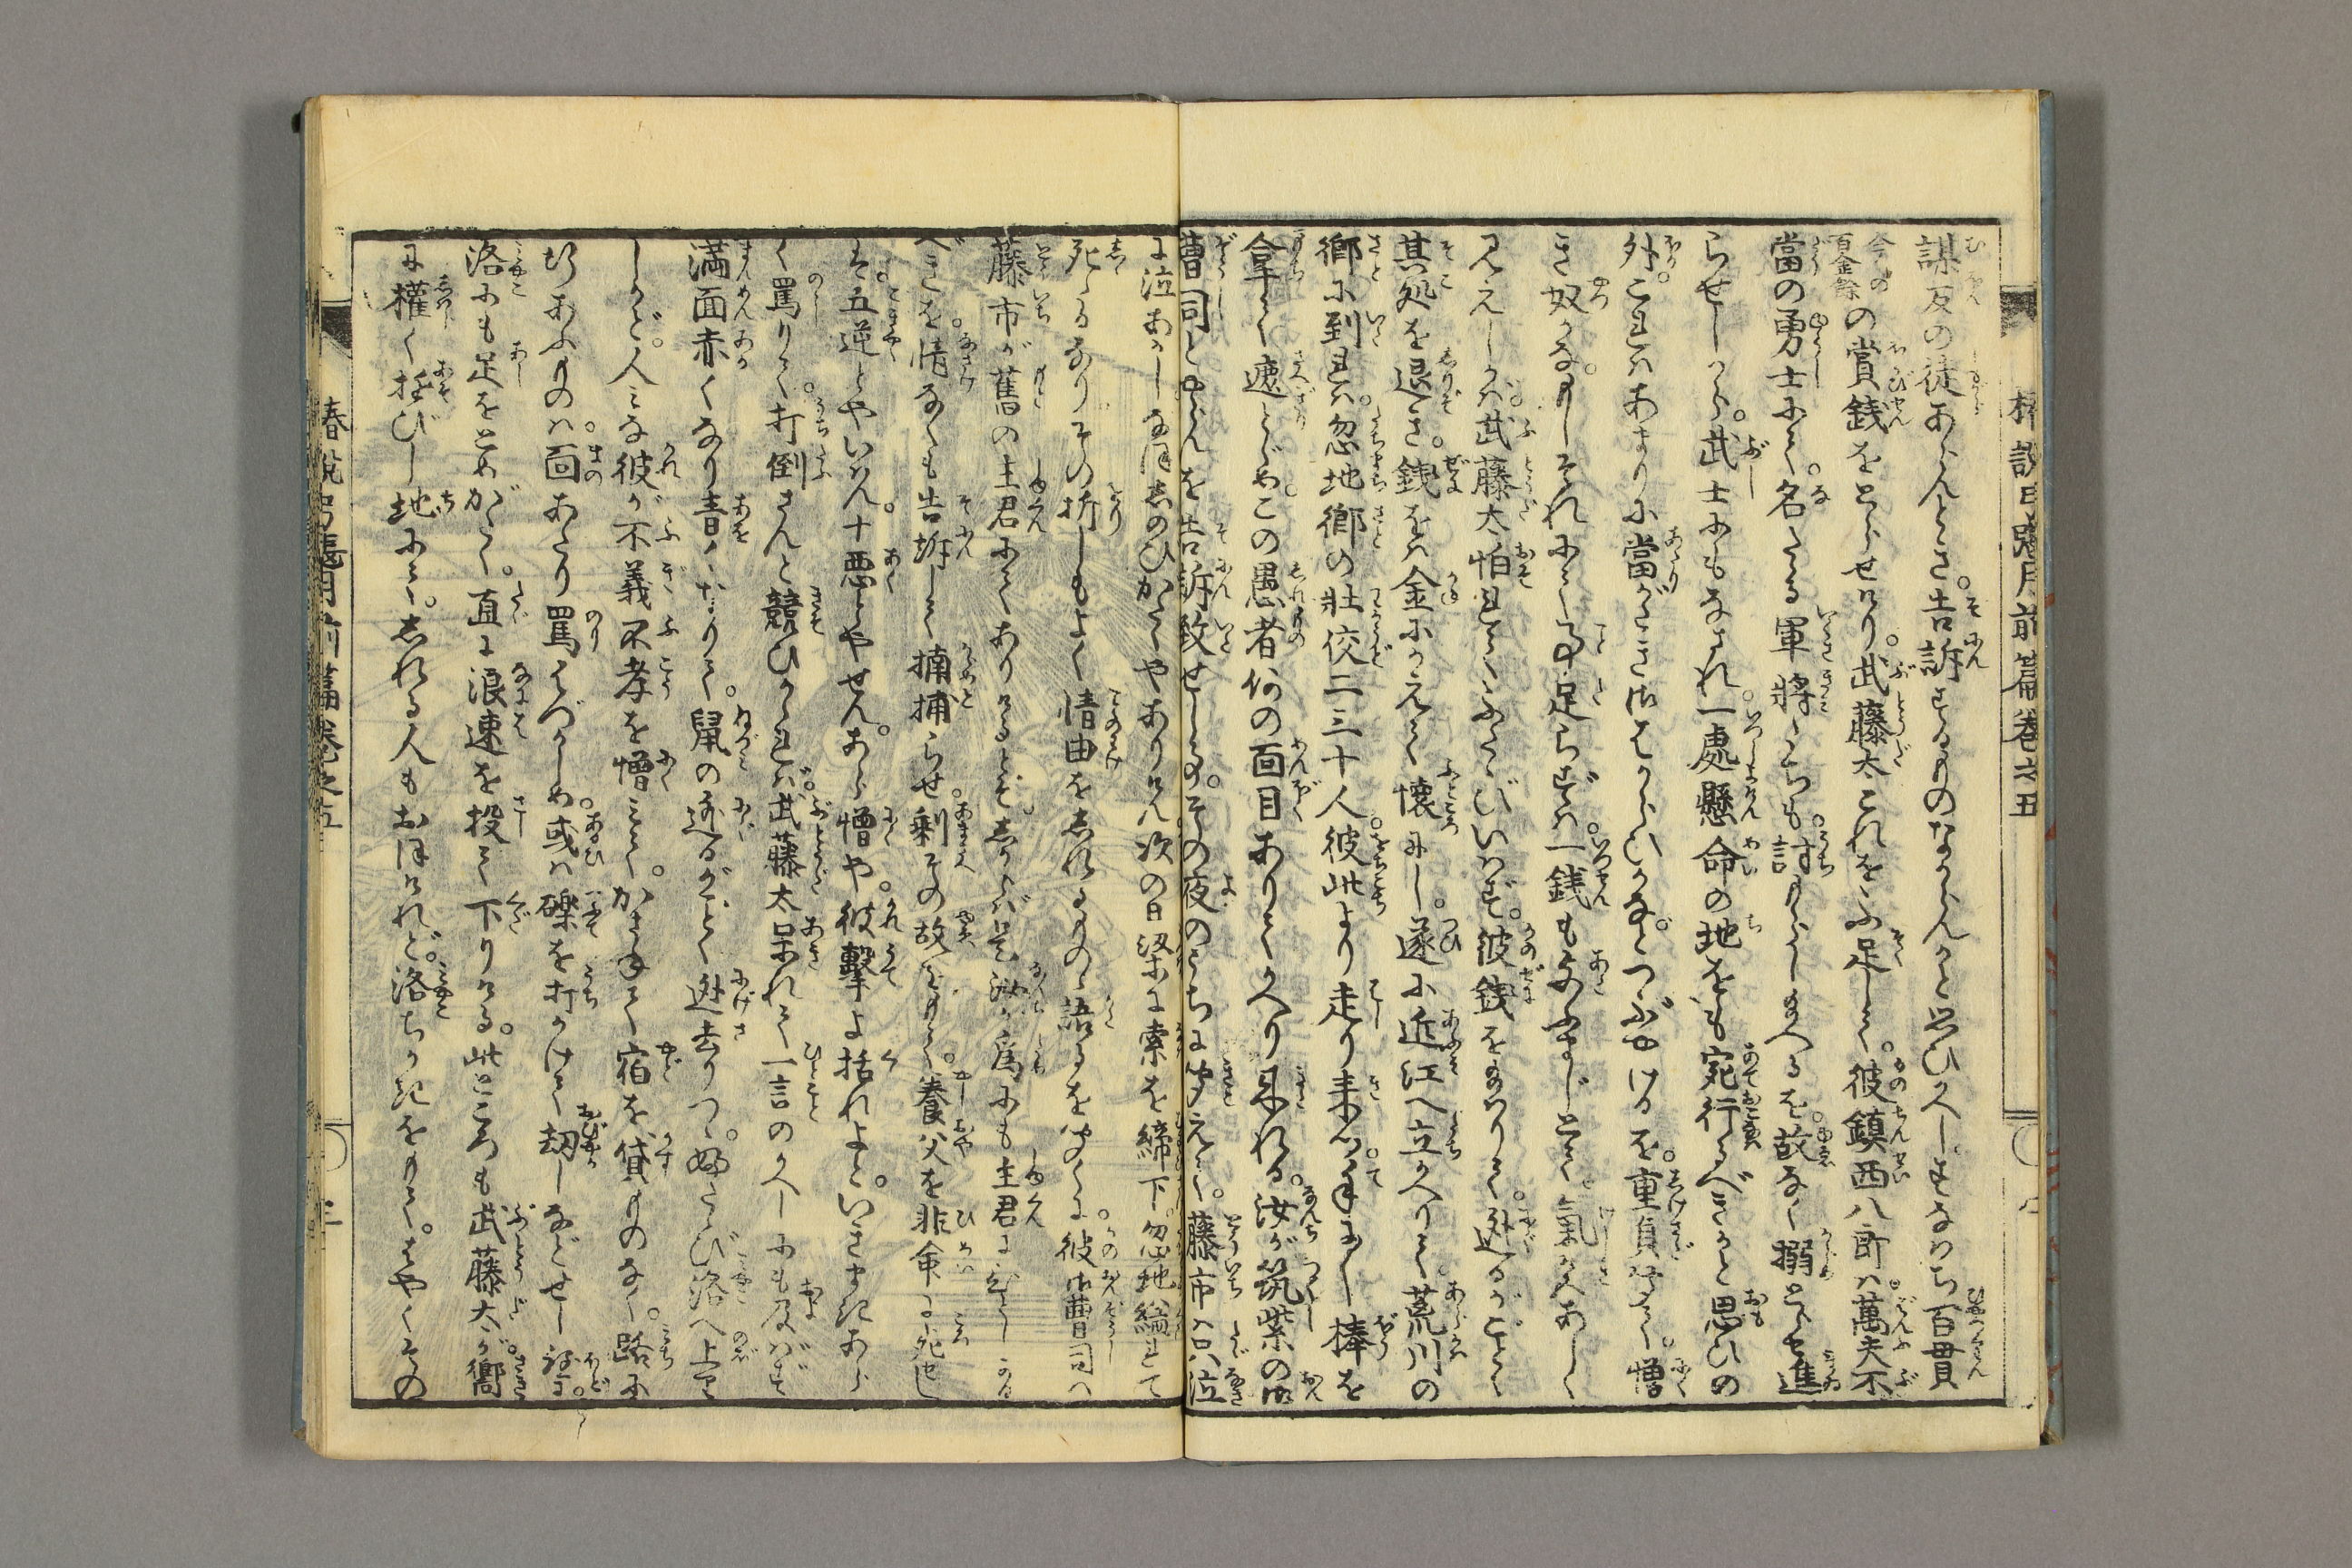 謀反の徒あらんとき。告訴するものなからんかと思ひかへしすなはち百貫
今の百金餘の賞銭をとらせけり。武藤太これをふ足して。彼鎮西八郎は。萬夫不
當の勇士にて。名たる軍將たちも。討もらし給へるを。故なく搦とらせ進
らせしかば。武士にもなされ。一處懸命の地をも宛行るべきかと思ひの
外。これはあまりに當がたき御はからひかな。とつぶやけるを。重貞聞て。憎
き奴かな。もしそれにて事足らずは。一銭も与ふまじとて。氣色あしく
見えしかば。武藤太怕れてふたゝびいはず。彼銭を給はりて。迯るがごとく
其処を退き。銭をは金にかえて懷にし。遂に近江へ立かへりて。荒川の
郷に到れは。忽地郷の壯佼二三十人。彼此より走り來つ。手に手に棒を
拿て遮とゞめ。この愚者何の面目ありてかへり來れる。汝が筑紫の御
曹司とやらんを告訴致せしよし。その夜のうちに聞えて。藤市は只泣
に泣あかしなほしのひかたくやありけん次の日梁に索を締下。忽地縊れて
死たるなりその折しもよく情由をしれるものゝ語るを聞くに。彼御曹司へ
藤市が舊の主君にてありけるとぞ。しからば是汝が爲にも主君に
べきを。情なくも告訴して搦捕らせ。剩その故をもて。養父を非命に死せし
そ。五逆とやいはん。十悪とやせん。あら憎や。彼撃よ括れよと。いきまきあら
く罵りて。打倒さんと競ひかゝれば。武藤太呆れて一言のかへしにも及ばず
満面赤くなり青くなりて。鼠の迯るがごとく迯去りつ。ふたゝび洛へ上り
しかど。人みな彼が不義不孝を憎みて。かさねて宿を貸ものなく。路に
行あふものは。面あたり罵はづかしめ。或は礫を打かけて劫しなどせし程に。
洛にも足をとめがたく。直に浪速を投て下りける。此ところも武藤太が嚮
に權く遊びし地にて。しれる人もおほけれど。洛ちかきをもて。はやくその
椿説弓張月前篇卷之五
椿説弓張月前篇卷之五